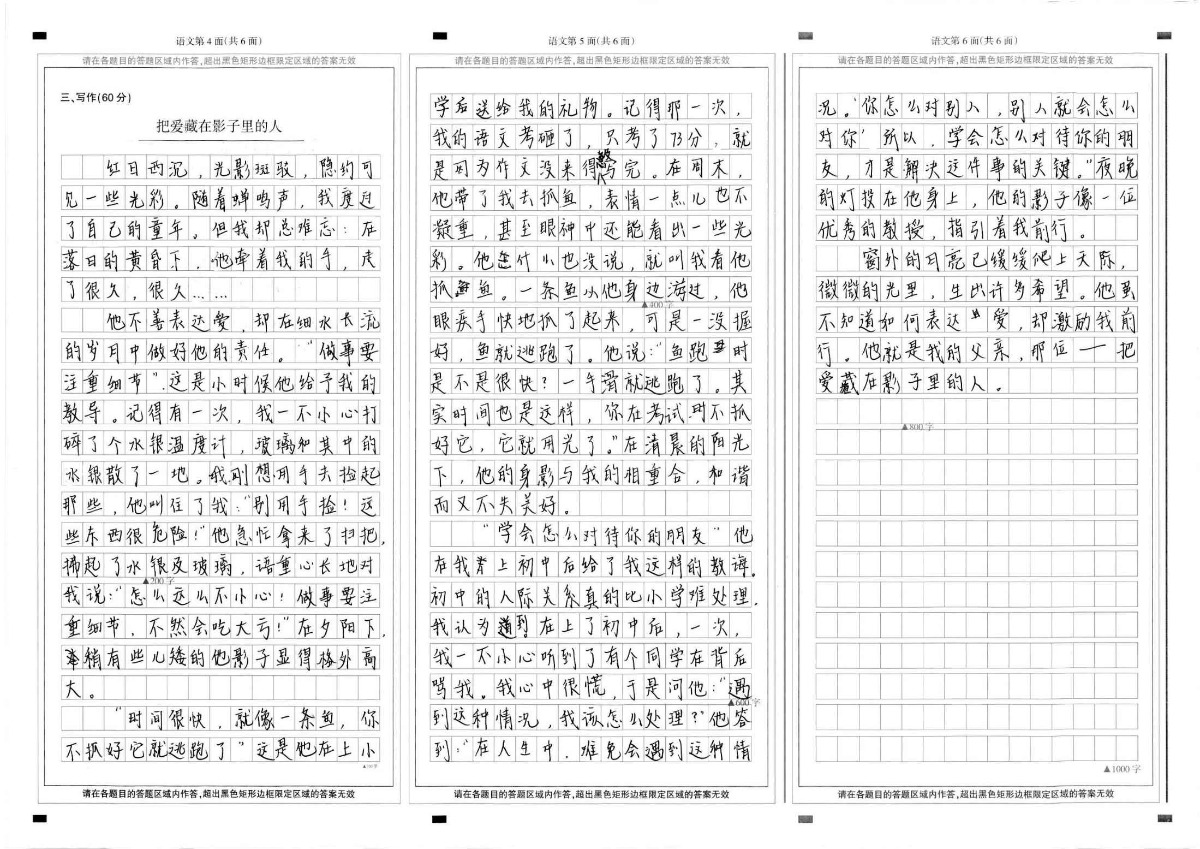 语文第4面(共6面)
请在各题目的答题区域内作答,超出黑色矩形边框限定区域的答案无效
三、写作(60分)
把爱藏在影子里的人
红日西沉，光影斑驳，隐约可
见一些光彩。随着蝉鸣声，我度过
了自己的童年。但我却总难忘：在
落日的黄昏下，他牵着我的手，走
了很久，很久……
他不善表达爱，却在细水长流
的岁月中做好他的责任。“做事要
注重细节”.这是小时候他给予我的
教导。记得有一次，我一不小心打
碎了个水银温度计，玻璃和其中的
水银散了一地。我刚想用手去捡起
那些，他叫住了我：“别用手捡！这
些东西很危险！”他急忙拿来了扫把，
拂起了水银及玻璃，语重心长地对
▲200字
我说：“怎么这么不小心！做事要注
重细节，不然会吃大亏！”在夕阳下，
稍有些儿矮的他影子显得格外高
大。
“时间很快，就像一条鱼，你
不抓好它就逃跑了”这是他在上小
请在各题目的答题区域内作答,超出黑色矩形边框限定区域的答案无效
语文第5面(共6面)
请在各题目的答题区域内作答,超出黑色矩形边框限定区域的答案无效
学后送给我的礼物。记得那一次，
我的语文考砸了，只考了73分，就
是因为作文没来得写完。在周末，
他带了我去抓鱼，表情一点儿也不
凝重，甚至眼神中还能看出一些光
彩。他什么也没说，就叫我看他
抓鱼。一条鱼从他身边游过，他
▲400字
眼疾手快地抓了起来，可是一没握
好，鱼就逃跑了。他说：“鱼跑时
是不是很快？一手滑就逃跑了。其
实时间也是这样，你在考试时不抓
好它，它就用光了。”在清晨的阳光
下，他的身影与我的相重合，和谐
而又不失美好。
“学会怎么对待你的朋友”他
在我上初中后给了我这样的教诲。
初中的人际关系真的比小学难处理。
我认为在上了初中后，一次，
我一不小心听到了有个同学在背后
骂我。我心中很慌，于是问他：“遇
▲600字
到这种情况，我该怎么处理？”他答
到：“在人生中，难免会遇到这种情
请在各题目的答题区域内作答,超出黑色矩形边框限定区域的答案无效
语文第6面(共6面)
请在各题目的答题区域内作答,超出黑色矩形边框限定区域的答案无效
况。‘你怎么对别人，别人就会怎么
对你’所以，学会怎么对待你的朋
友，才是解决这件事的关键。”夜晚
的灯投在他身上，他的影子像一位
优秀的教授，指引着我前行。
窗外的月亮已缓缓爬上天际，
微微的光里，生出许多希望。他虽
不知道如何表达爱，却激励我前
行。他就是我的父亲，那位——把
爱藏在影子里的人。
▲800字
▲1000字
请在各题目的答题区域内作答,超出黑色矩形边框限定区域的答案无效